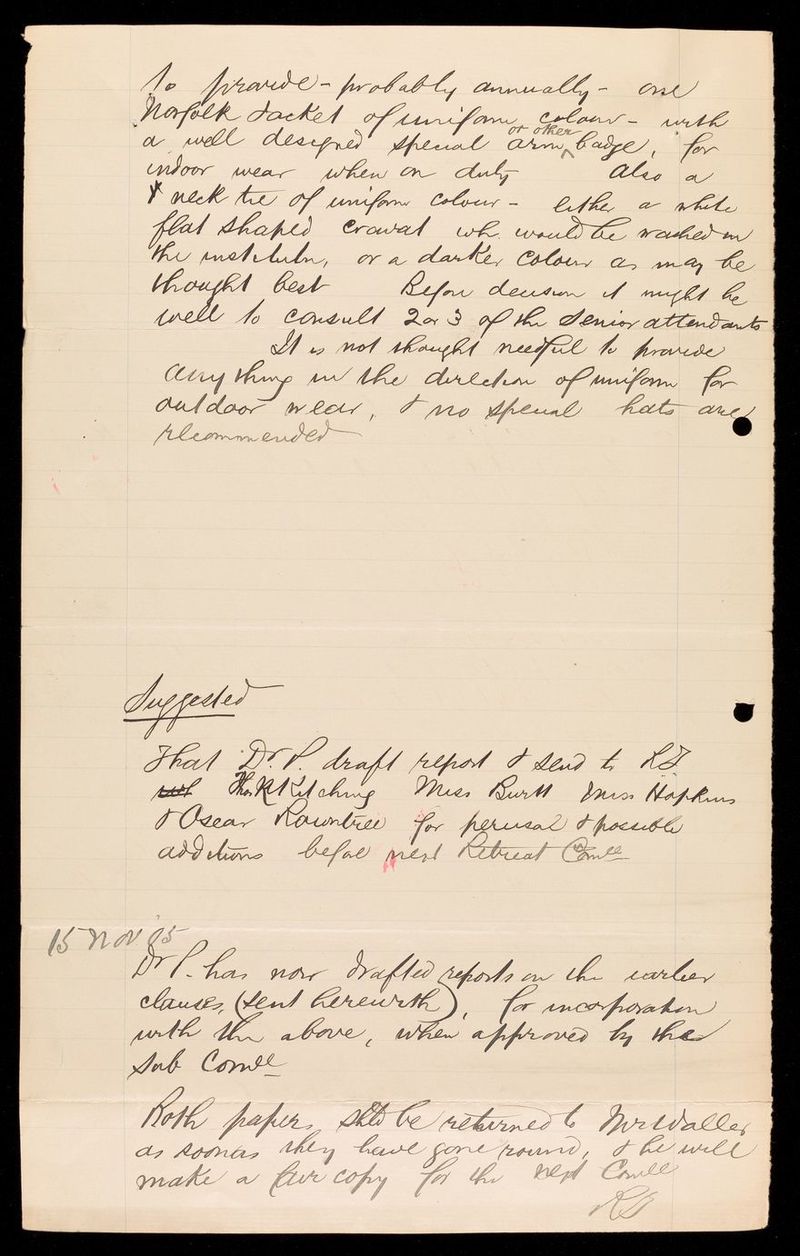 to provide - probably annually - one
Norfolk Jacket of uniform colour - with
a well designed special arm or other badge, for
indoor wear when on duty Also a
neck tie of uniform colour - either a white
flat shaped cravat wh. would be washed in
the institutn, or a darker colour as may be
thought best Before decision it might be
well to consult 2 or 3 of the Senior attendants
It is not thought needful to provide
anything in the direction of uniform for
outdoor wear, & no special hats are
recommended
Suggested
That Dr. P. draft report & send to
Thos K Kitching Miss Burtt Miss Hopkins
& Oscar Rowntree for perusal & possible
additions before next Retreat Comee
15 Nov 05
Dr P. has now drafted reports on the earlier
clauses, (sent herewith), for incorporation
with the above, when approved by the
Sub Comee
Both papers shld be returned to Mr Waller
as soon as they have gone round, & he will
make a fair copy for the next Comee